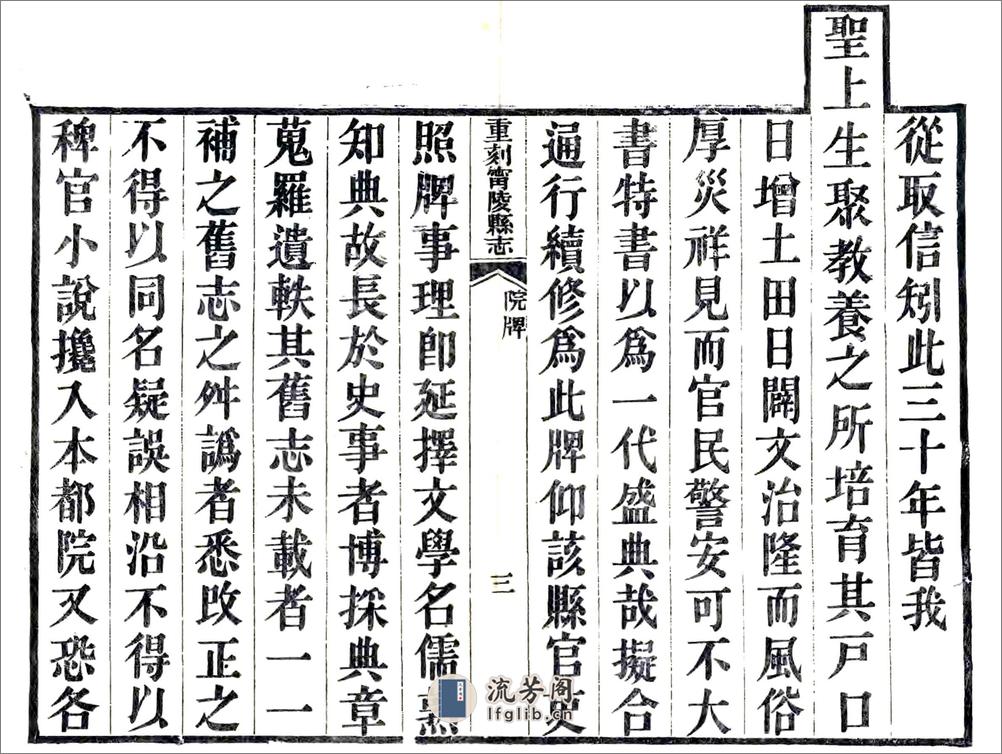 從取信矧此三十年皆我
聖上生聚教養之所培育其戸口
日增土田日闢文治隆而風俗
厚災祥見而官民警安可不大
書特書以爲一代盛典哉擬合
通行續修爲此牌仰該縣官吏
重刻甯陵縣志
院牌
三
照牌事理卽延擇文學名儒熟
知典故長於史事者博採典章
蒐羅遺軼其舊志未載者一一
補之舊志之舛譌者悉改正之
不得以同名疑誤相沿不得以
稗官小說攙入本都院又恐各
流芳阁
lfglib.cn